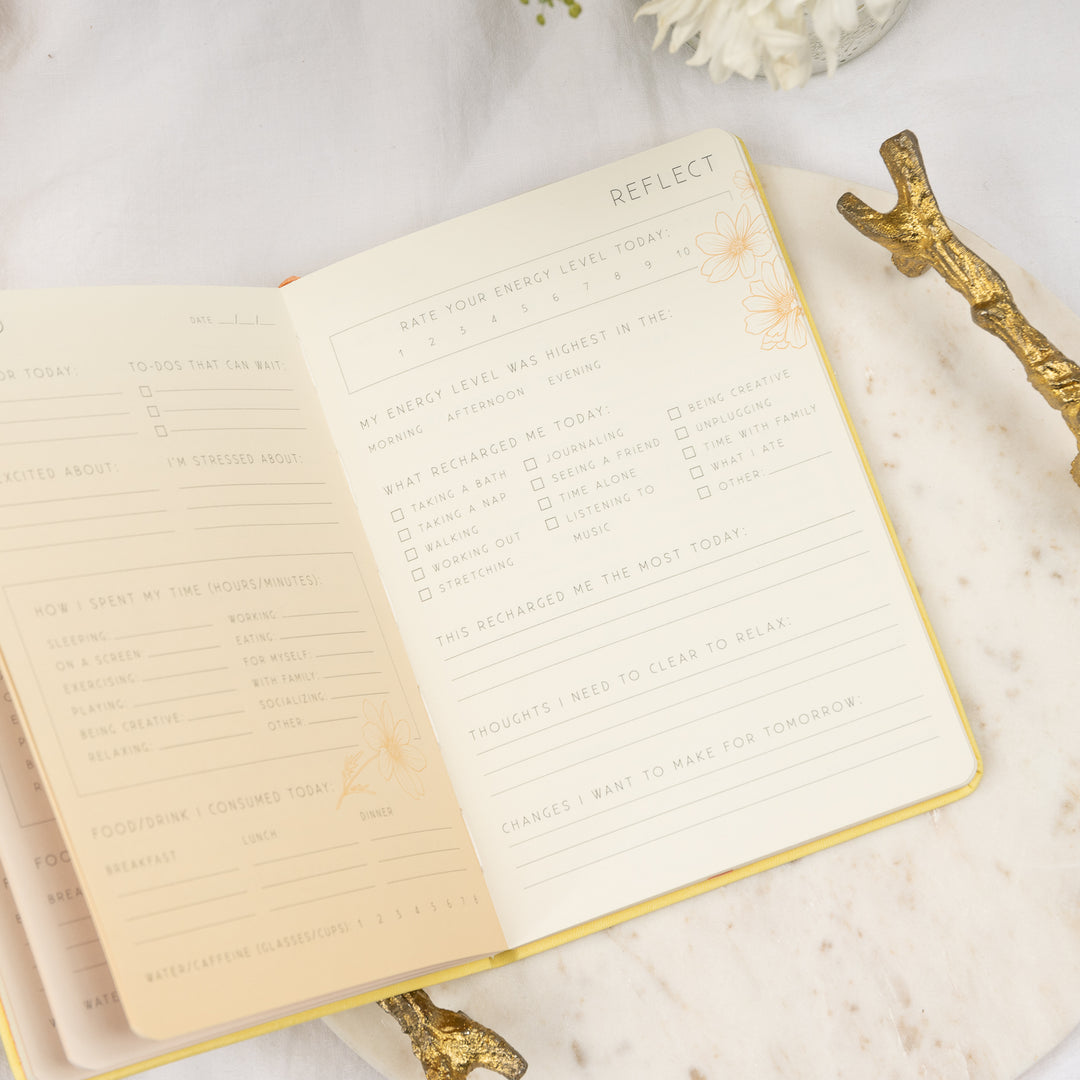 DATE __/__/__
OR TODAY:
TO-DOS THAT CAN WAIT:
EXCITED ABOUT:
I'M STRESSED ABOUT:
HOW I SPENT MY TIME (HOURS/MINUTES):
SLEEPING:
ON A SCREEN:
EXERCISING:
PLAYING:
BEING CREATIVE:
RELAXING:
WORKING:
EATING:
FOR MYSELF:
WITH FAMILY:
SOCIALIZING:
OTHER:
FOOD/DRINK I CONSUMED TODAY:
BREAKFAST
LUNCH
DINNER
WATER/CAFFEINE (GLASSES/CUPS): 1 2 3 4 5 6 7 8
FOO
BREA
WATE
REFLECT
RATE YOUR ENERGY LEVEL TODAY:
1 2 3 4 5 6 7 8 9 10
MY ENERGY LEVEL WAS HIGHEST IN THE:
MORNING AFTERNOON EVENING
WHAT RECHARGED ME TODAY:
TAKING A BATH
TAKING A NAP
WALKING
WORKING OUT
STRETCHING
JOURNALING
SEEING A FRIEND
TIME ALONE
LISTENING TO
MUSIC
BEING CREATIVE
UNPLUGGING
TIME WITH FAMILY
WHAT I ATE
OTHER:
THIS RECHARGED ME THE MOST TODAY:
THOUGHTS I NEED TO CLEAR TO RELAX:
CHANGES I WANT TO MAKE FOR TOMORROW: